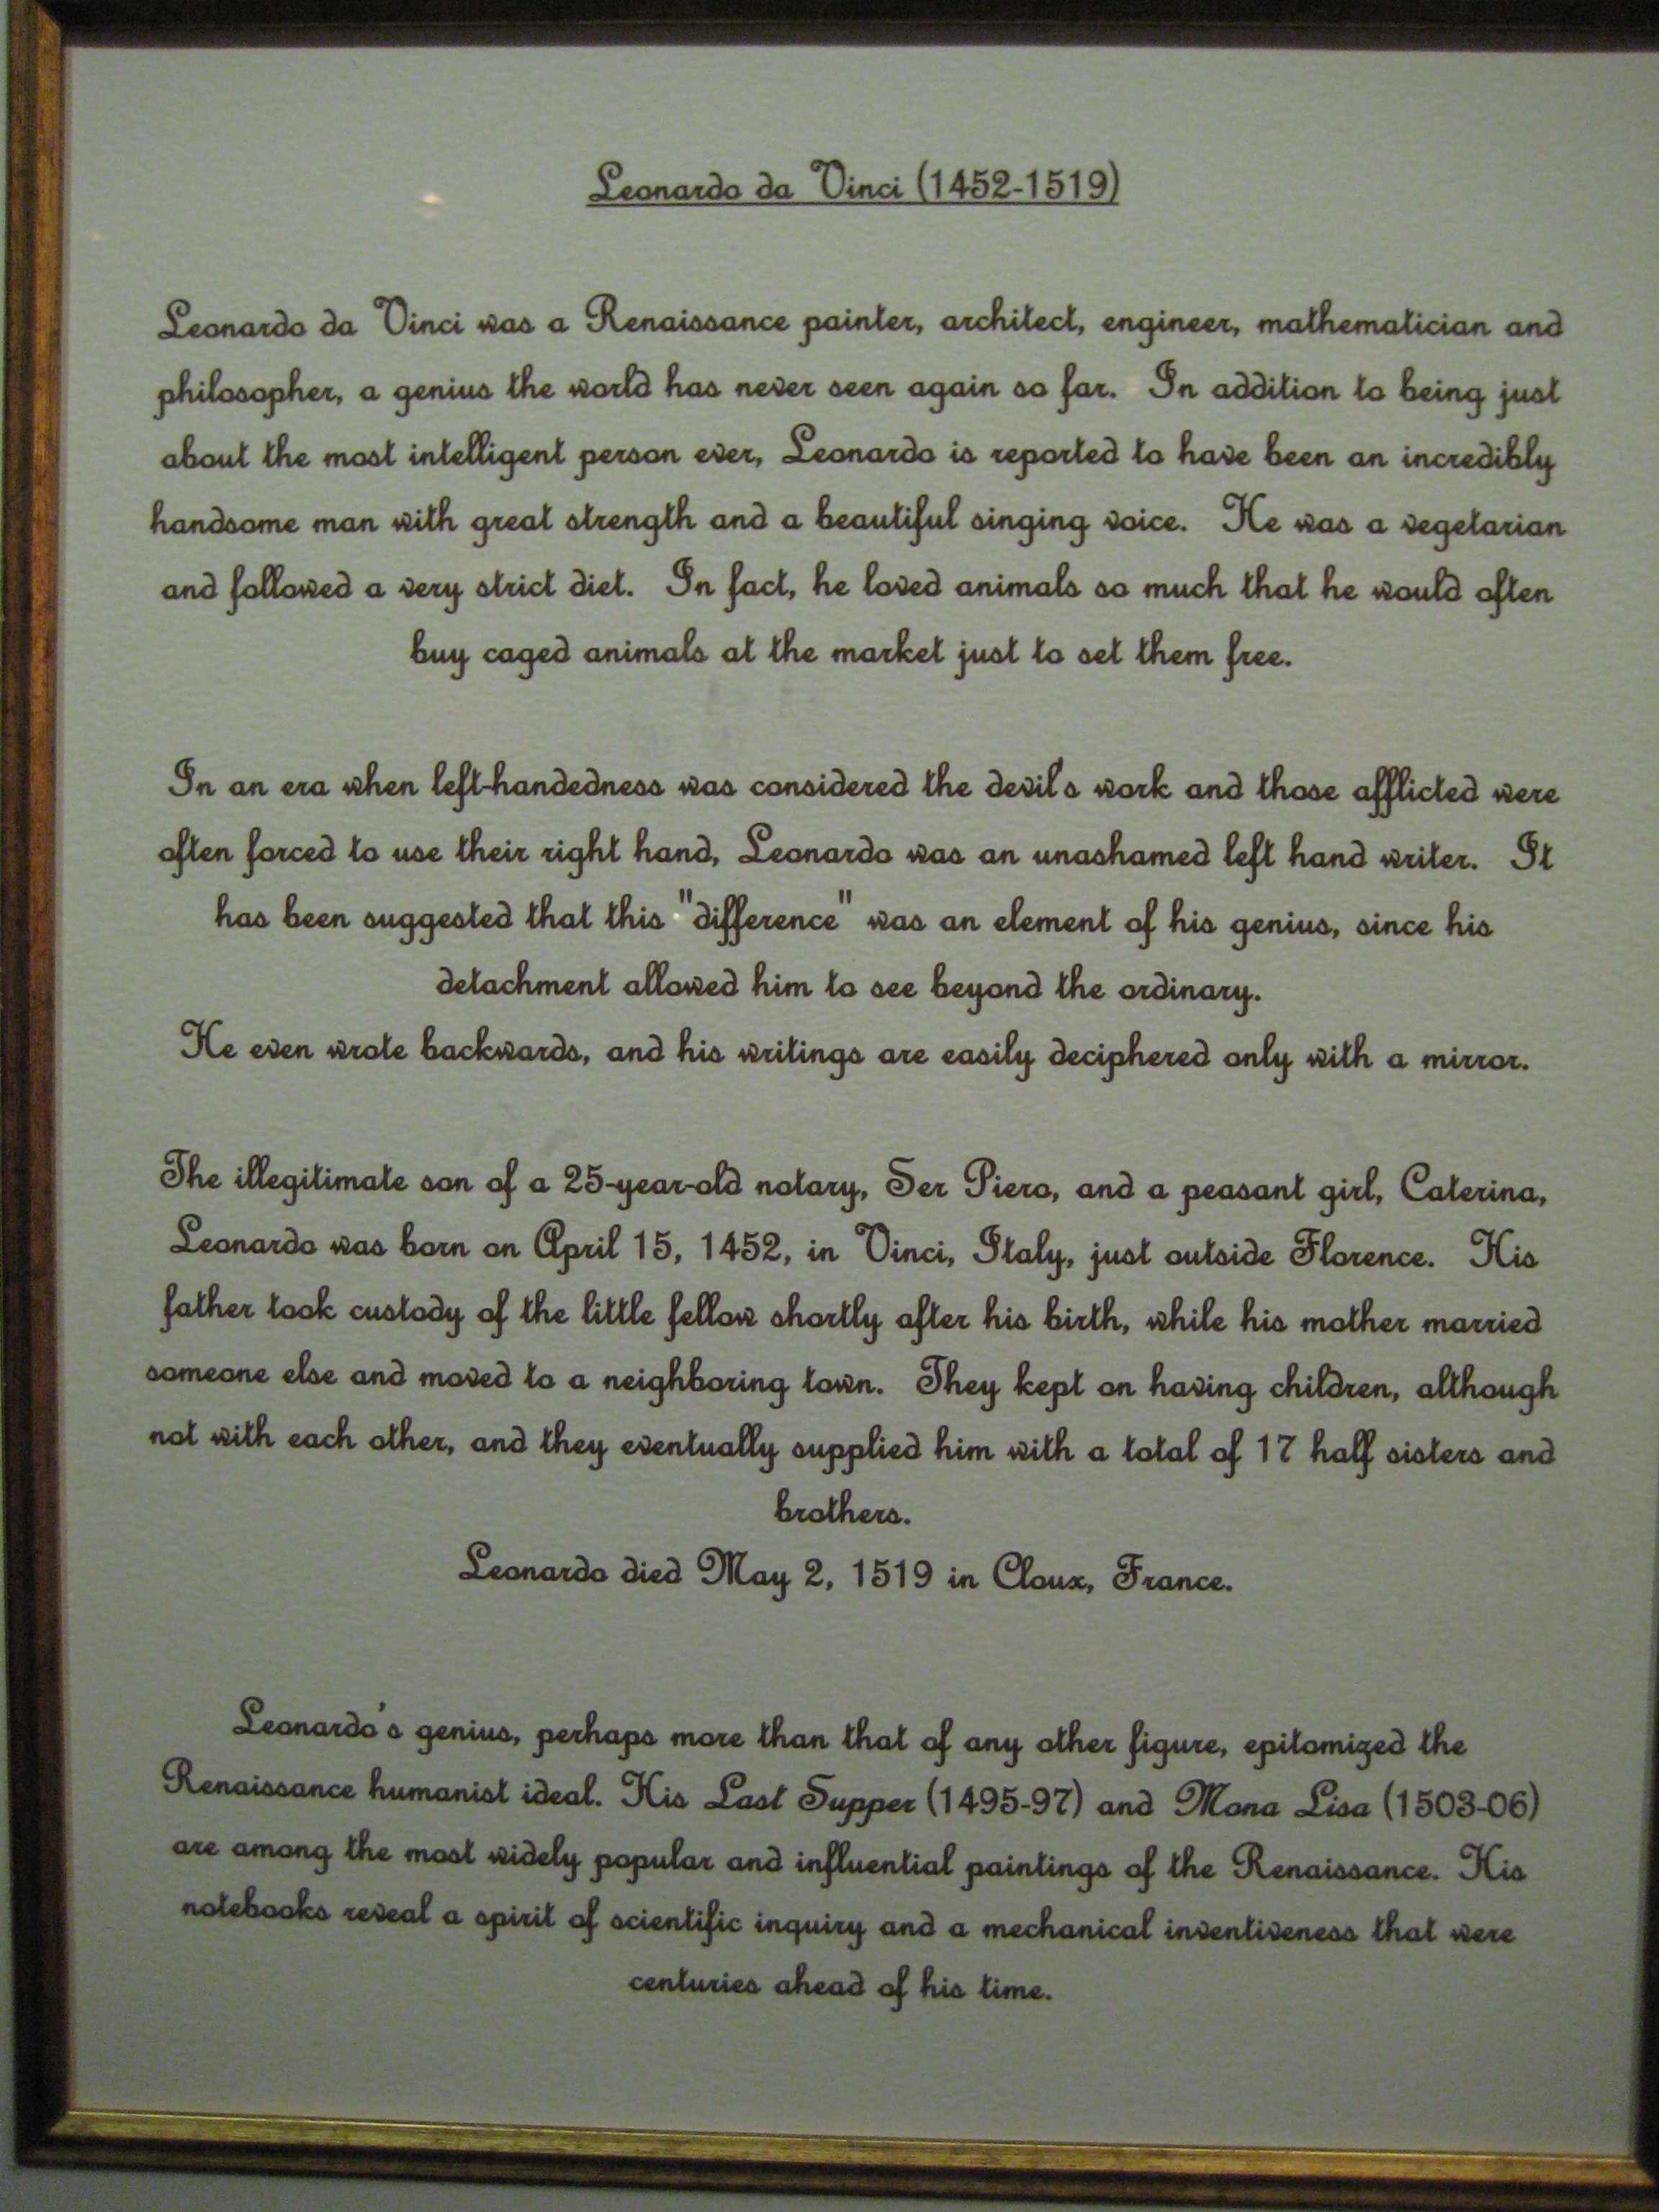 Leonardo da Vinci (1452-1519)
Leonardo da Vinci was a Renaissance painter, architect, engineer, mathematician and
philosopher, a genius the world has never seen again so far. In addition to being just
about the most intelligent person ever, Leonardo is reported to have been an incredibly
handsome man with great strength and a beautiful singing voice. He was a vegetarian
and followed a very strict diet. In fact, he loved animals so much that he would often
buy caged animals at the market just to set them free.
In an era when left-handedness was considered the devil's work and those afflicted were
often forced to use their right hand, Leonardo was an unashamed left hand writer. It
has been suggested that this "difference" was an element of his genius, since his
detachment allowed him to see beyond the ordinary.
He even wrote backwards, and his writings are easily deciphered only with a mirror.
The illegitimate son of a 25-year-old notary, Ser Piero, and a peasant girl, Caterina,
Leonardo was born on April 15, 1452, in Vinci, Italy, just outside Florence. His
father took custody of the little fellow shortly after his birth, while his mother married
someone else and moved to a neighboring town. They kept on having children, although
not with each other, and they eventually supplied him with a total of 17 half sisters and
brothers.
Leonardo died May 2, 1519 in Cloux, France.
Leonardo's genius, perhaps more than that of any other figure, epitomized the
Renaissance humanist ideal. His Last Supper (1495-97) and Mona Lisa (1503-06)
are among the most widely popular and influential paintings of the Renaissance. His
notebooks reveal a spirit of scientific inquiry and a mechanical inventiveness that were
centuries ahead of his time.